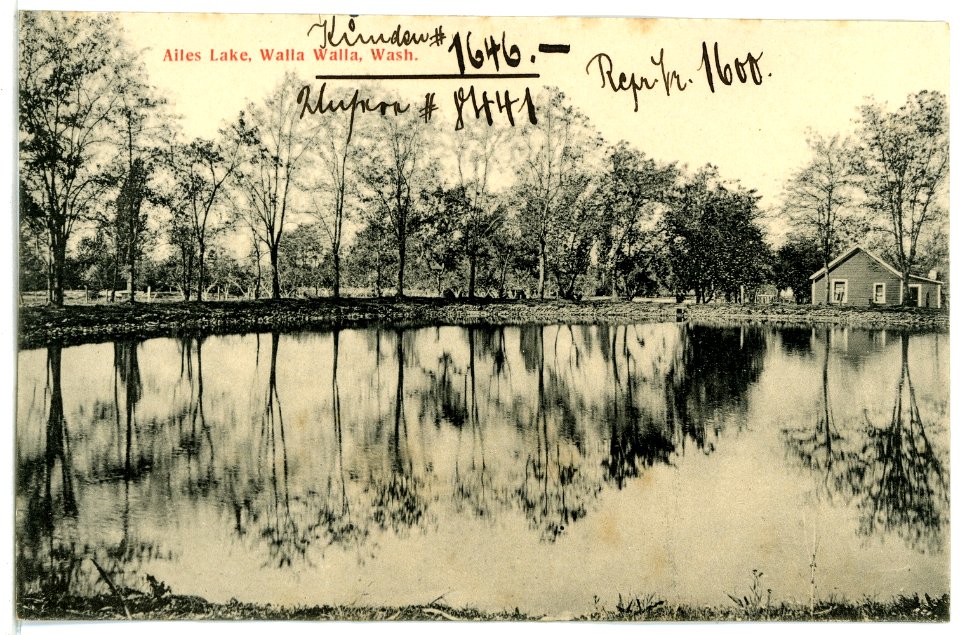 Kunden # 1646.—
Ailes Lake, Walla Walla, Wash.
Repr. Nr. 1600.
Unsere # 81441